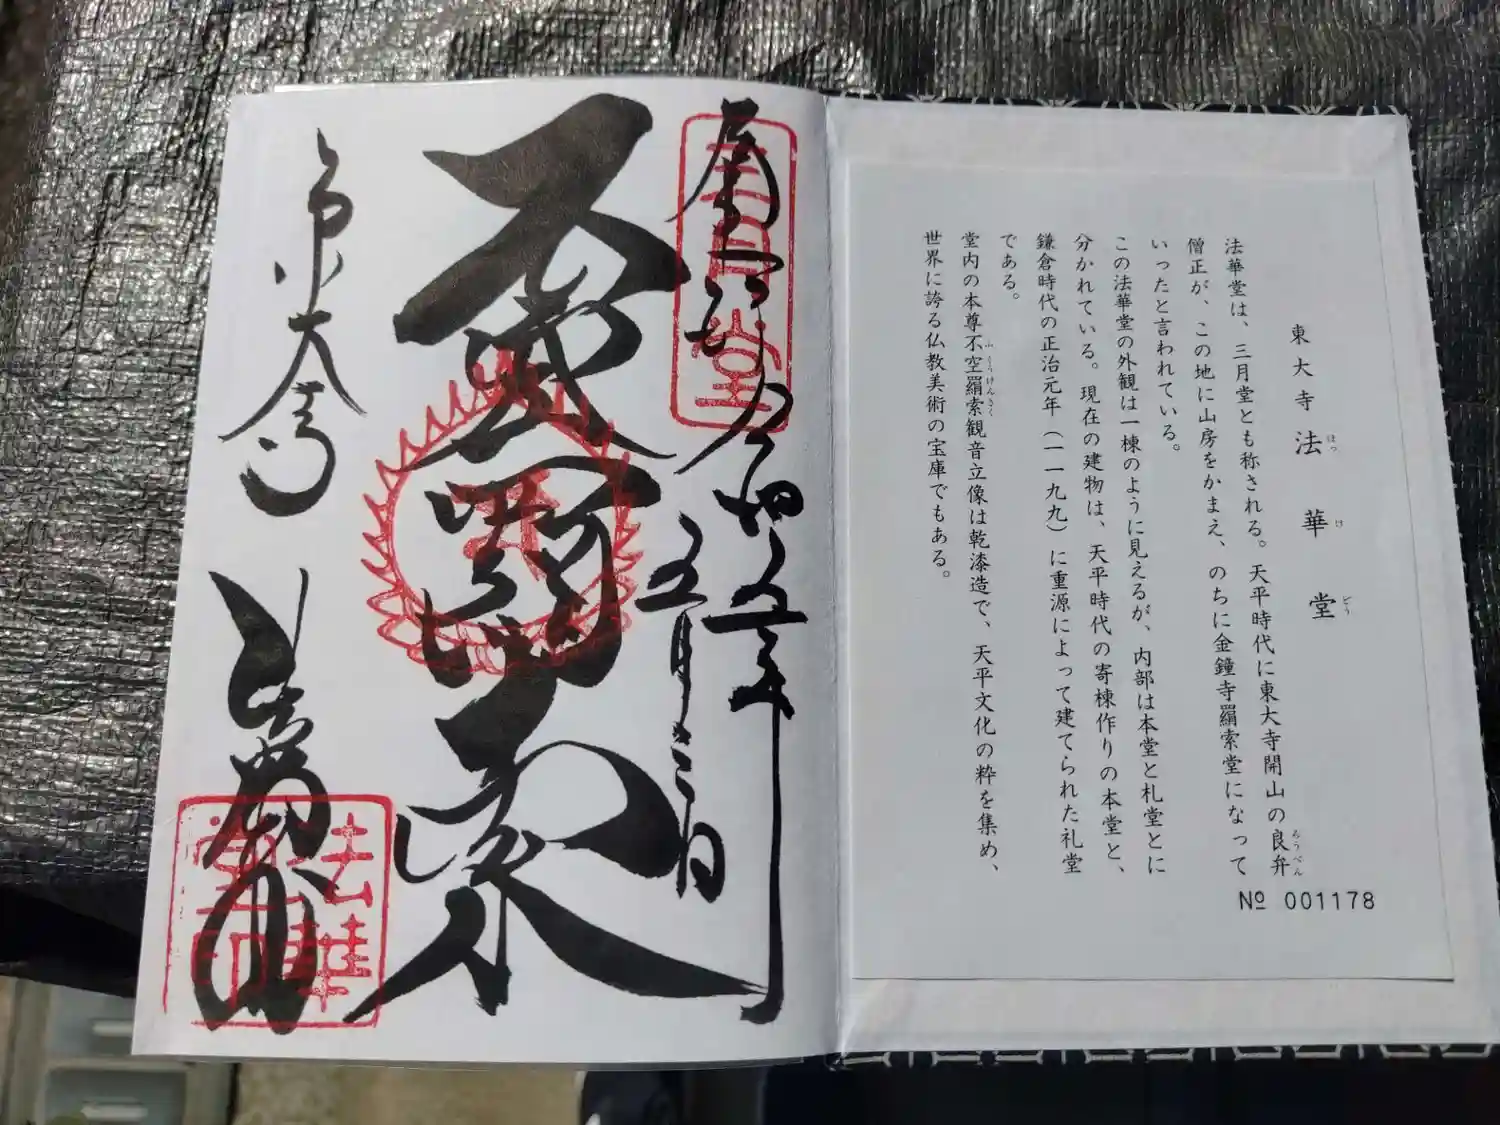 東大寺法華堂
ほっ け どう
法華堂は、三月堂とも称される。天平時代に東大寺開山の良弁
ろうべん
僧正が、この地に山房をかまえ、のちに金鐘寺羂索堂になって
いったと言われている。
この法華堂の外観は一棟のように見えるが、内部は本堂と札堂とに
分かれている。現在の建物は、天平時代の寄棟作りの本堂と、
鎌倉時代の正治元年（一一九九）に重源によって建てられた礼堂
である。
堂内の本尊不空羂索観音立像は乾漆造で、天平文化の粋を集め、
ふくうけんさく
世界に誇る仏教美術の宝庫でもある。
№ 001178
三月堂
奉拝
令和五年
五月三日
不空羂索
大寺
法華堂印